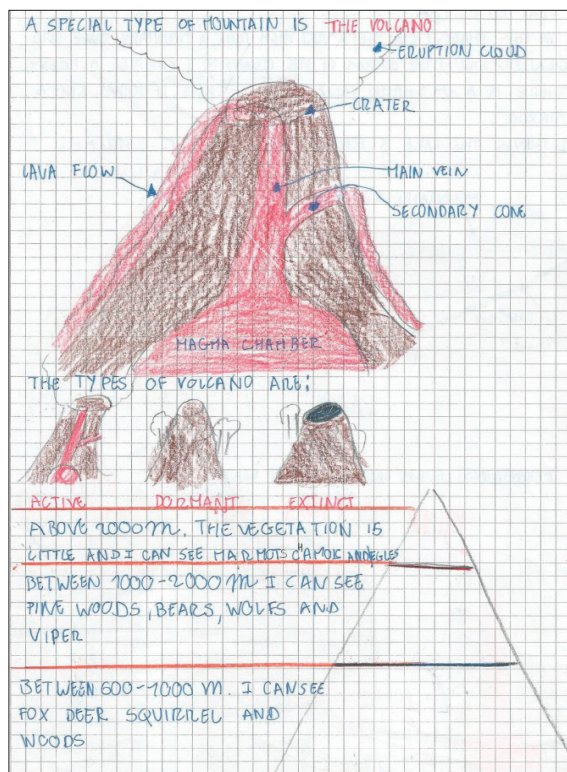 A SPECIAL TYPE OF MOUNTAIN IS THE VOLCANO
ERUPTION CLOUD
CRATER
LAVA FLOW
MAIN VEIN
SECONDARY CONE
MAGMA CHAMBER
THE TYPES OF VOLCANO ARE:
ACTIVE DORMANT EXTINCT
ABOVE 2000 m. THE VEGETATION IS
LITTLE AND I CAN SEE MARMOTS
BETWEEN 1000-2000 m I CAN SEE
PINE WOODS, BEARS, WOLFS AND
VIPER
BETWEEN 600-1000 m. I CAN SEE
FOX DEER SQUIRREL AND
WOODS